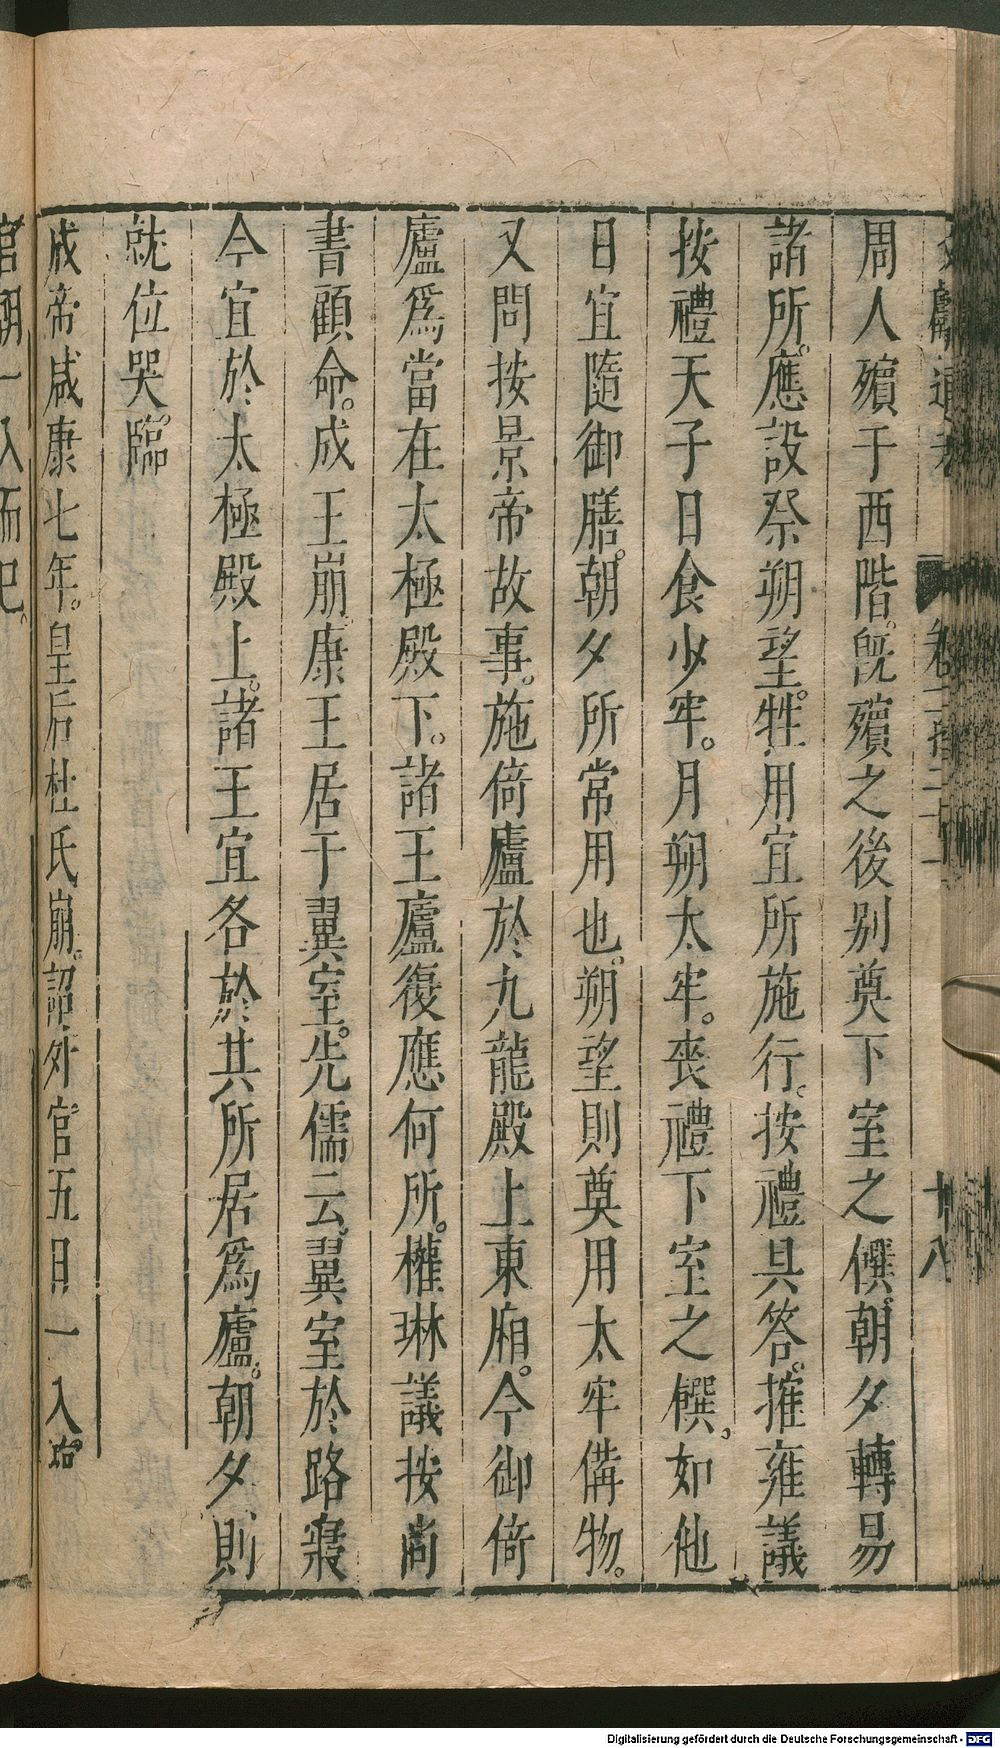 文獻通考 卷一百二十一 十八
周人殯于西階。旣殯之後别奠下室之饌。朝夕轉易
諸所。應設祭朔望。牲用宜所施行。按禮具答。摧雍議
按禮天子日食少牢。月朔太牢。喪禮下室之饌。如他
日宜隨御膳。朝夕所常用也。朔望則奠用太牢備物。
又問按景帝故事。施倚廬於九龍殿上東廂。今御倚
廬爲當在太極殿下。諸王廬復應何所。權琳議按尚
書顧命。成王崩。康王居于翼室。先儒云。翼室於路寢
今宜於太極殿上。諸王宜各於其所居爲廬。朝夕則
就位哭。臨
成帝咸康七年。皇后杜氏崩。詔外官五日一入臨。
官朝一入而已。
Digitalisierung gefördert durch die Deutsche Forschungsgemeinschaft - DFG